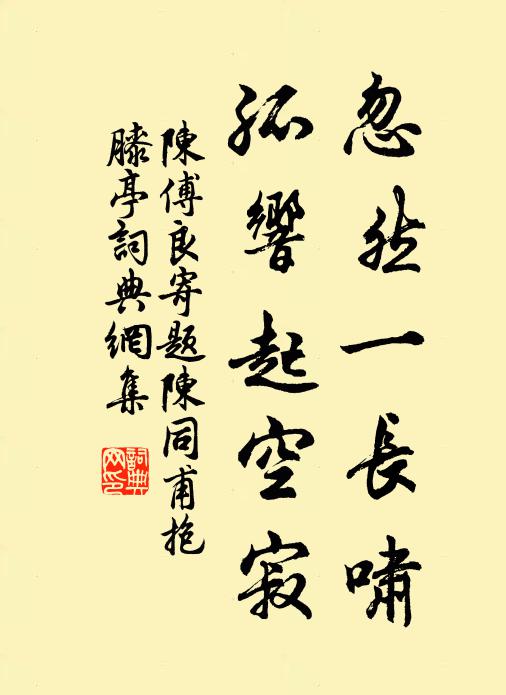 忽然一長嘯
孤響起空寂
陳傅良寄題陳同甫抱
膝亭詞典網集
詞典網印